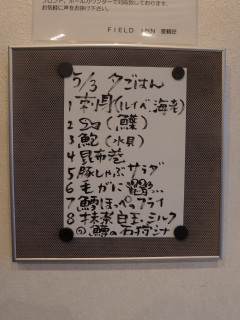 フロント、ホールカウンターで対応致しております。
お気軽に声をお掛け下さい。
FIELD INN
5/3 夕ごはん
1 刺身(ルイベ、海老)
2 (鰈)
3 鮑(水貝)
4 昆布巻
5 豚しゃぶサラダ
6 毛がに
7 鱈ほっぺフライ
8 抹茶白玉・ミルク
の石狩